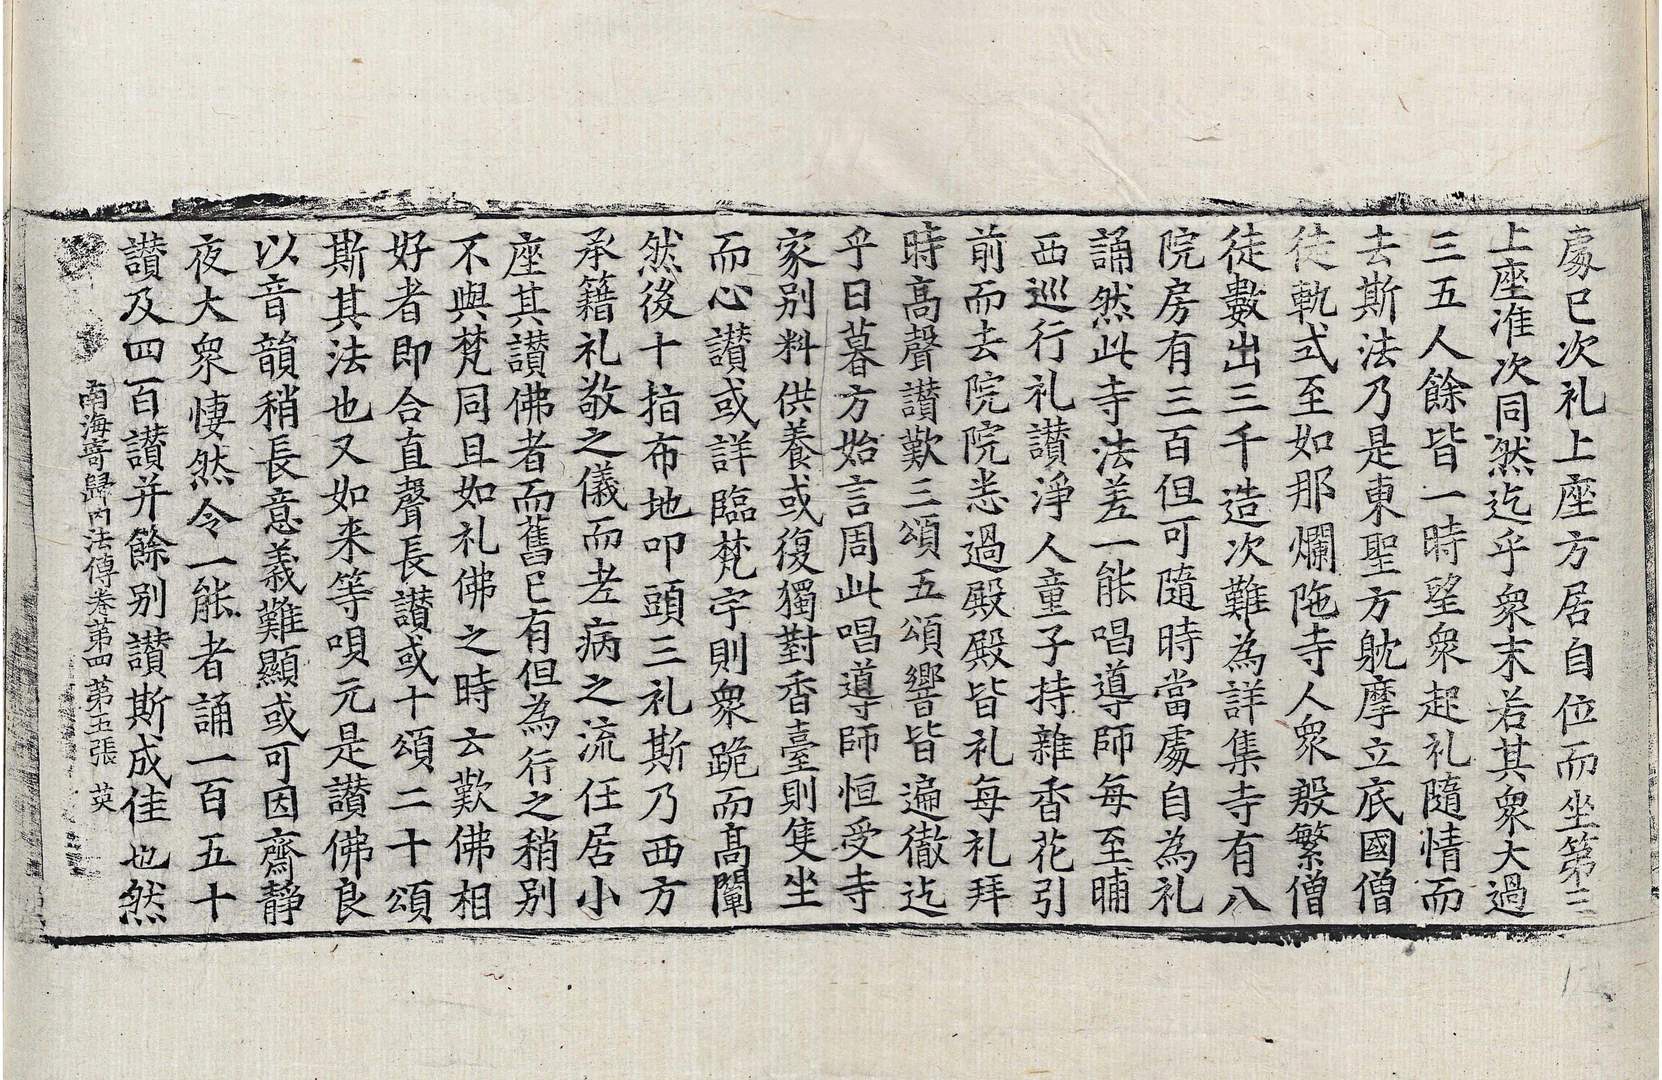 處已次礼上座方居自位而坐第三
上座准次同然迄乎衆末若其衆大過
三五人餘皆一時望衆起礼隨情而
去斯法乃是東聖方躭摩立底國僧
徒軌式至如那爛陁寺人衆殷繁僧
徒數出三千造次難為詳集寺有八
院房有三百但可隨時當處自為礼
誦然此寺法差一能唱導師每至晡
西巡行礼讃淨人童子持雜香花引
前而去院院悉過殿殿皆礼每礼拜
時高聲讃歎三頌五頌響皆遍徹迄
乎日暮方始言周此唱導師恒受寺
家別料供養或復獨對香臺則隻坐
而心讃或詳臨梵宇則衆跪而高闡
然後十指布地叩頭三礼斯乃西方
承籍礼敬之儀而老病之流任居小
座其讃佛者而舊已有但為行之稍別
不與梵同且如礼佛之時云歎佛相
好者即合直聲長讃或十頌二十頌
斯其法也又如来等唄元是讃佛良
以音韻稍長意義難顯或可因齋靜
夜大衆悽然令一能者誦一百五十
讃及四百讃并餘別讃斯成佳也然
南海寄歸內法傳卷第四 第五張 英